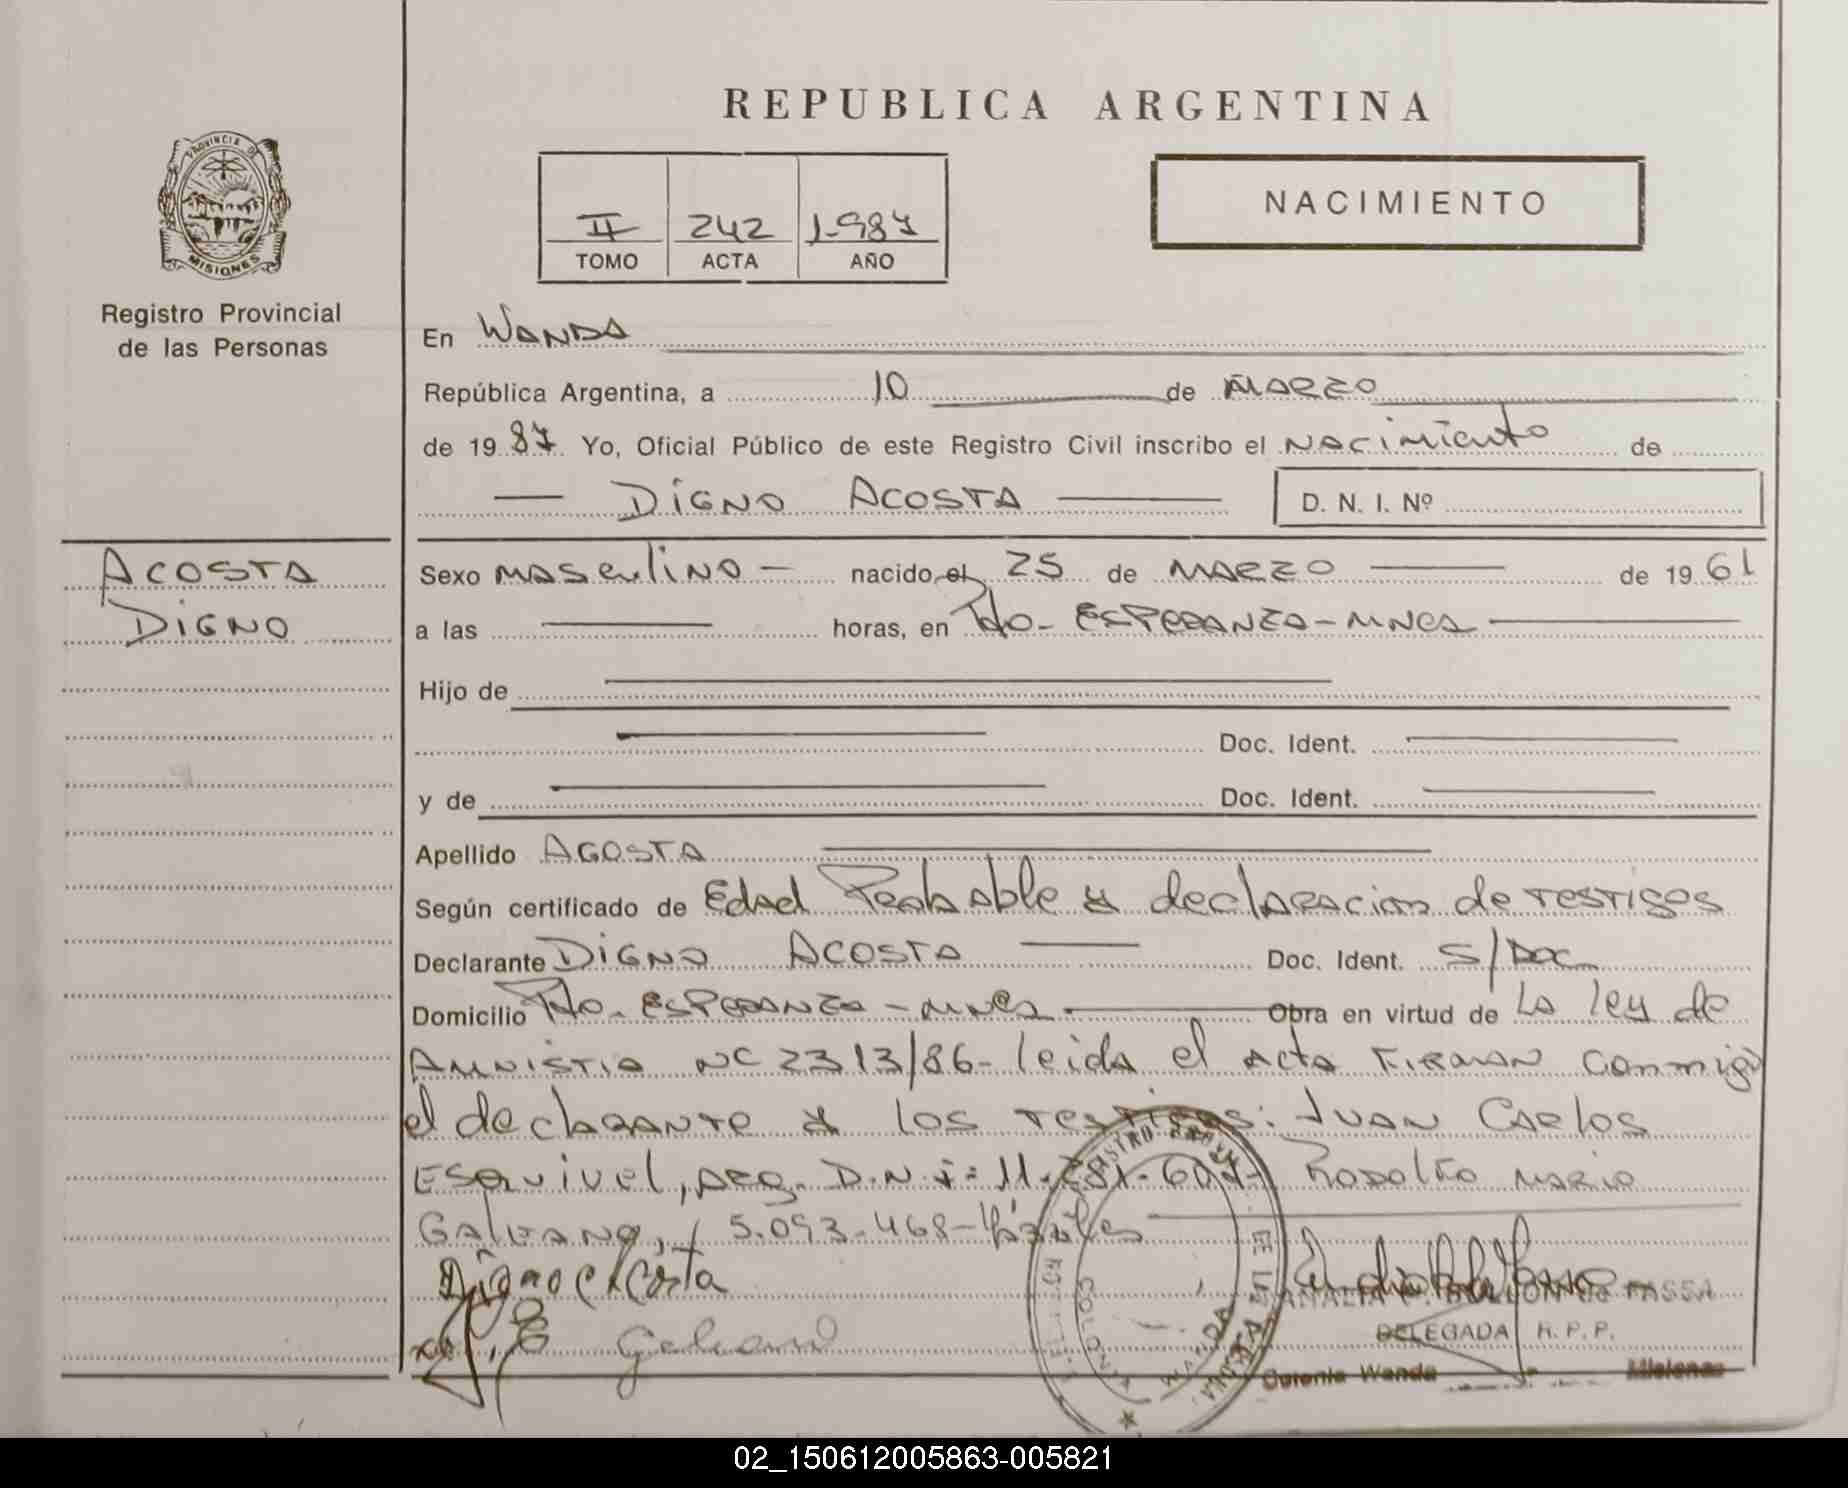 REPUBLICA ARGENTINA
PROVINCIA DE
MISIONES
Registro Provincial
de las Personas
II 242 1.987
TOMO ACTA AÑO
NACIMIENTO
En WANDA
República Argentina, a 10 de MARZO
de 1987 Yo, Oficial Público de este Registro Civil inscribo el NACIMIENTO de
DIGNO ACOSTA D. N. I. Nº
ACOSTA
DIGNO
Sexo MASCULINO - nacido el 25 de MARZO de 1961
a las horas, en Pto- ESPERANZA-MNES
Hijo de
Doc. Ident.
y de Doc. Ident.
Apellido ACOSTA
Según certificado de Edad Probable y declaracion de testigos
Declarante DIGNO ACOSTA Doc. Ident. S/Doc
Domicilio Pto. ESPERANZA-MNES Obra en virtud de La ley de
AMNISTIA Nº 2313/86- leida el acta FIRMAN conmigo
el declarante y los testigos: JUAN CARLOS
ESQUIVEL, ARG. D.N.I: RODOLFO MARIO
GALEANO, 5.093.468-
Digno Acosta
Galeano
DELEGADA R. P. P.
Colonia Wanda Misiones
COLONIA
WANDA
02_150612005863-005821